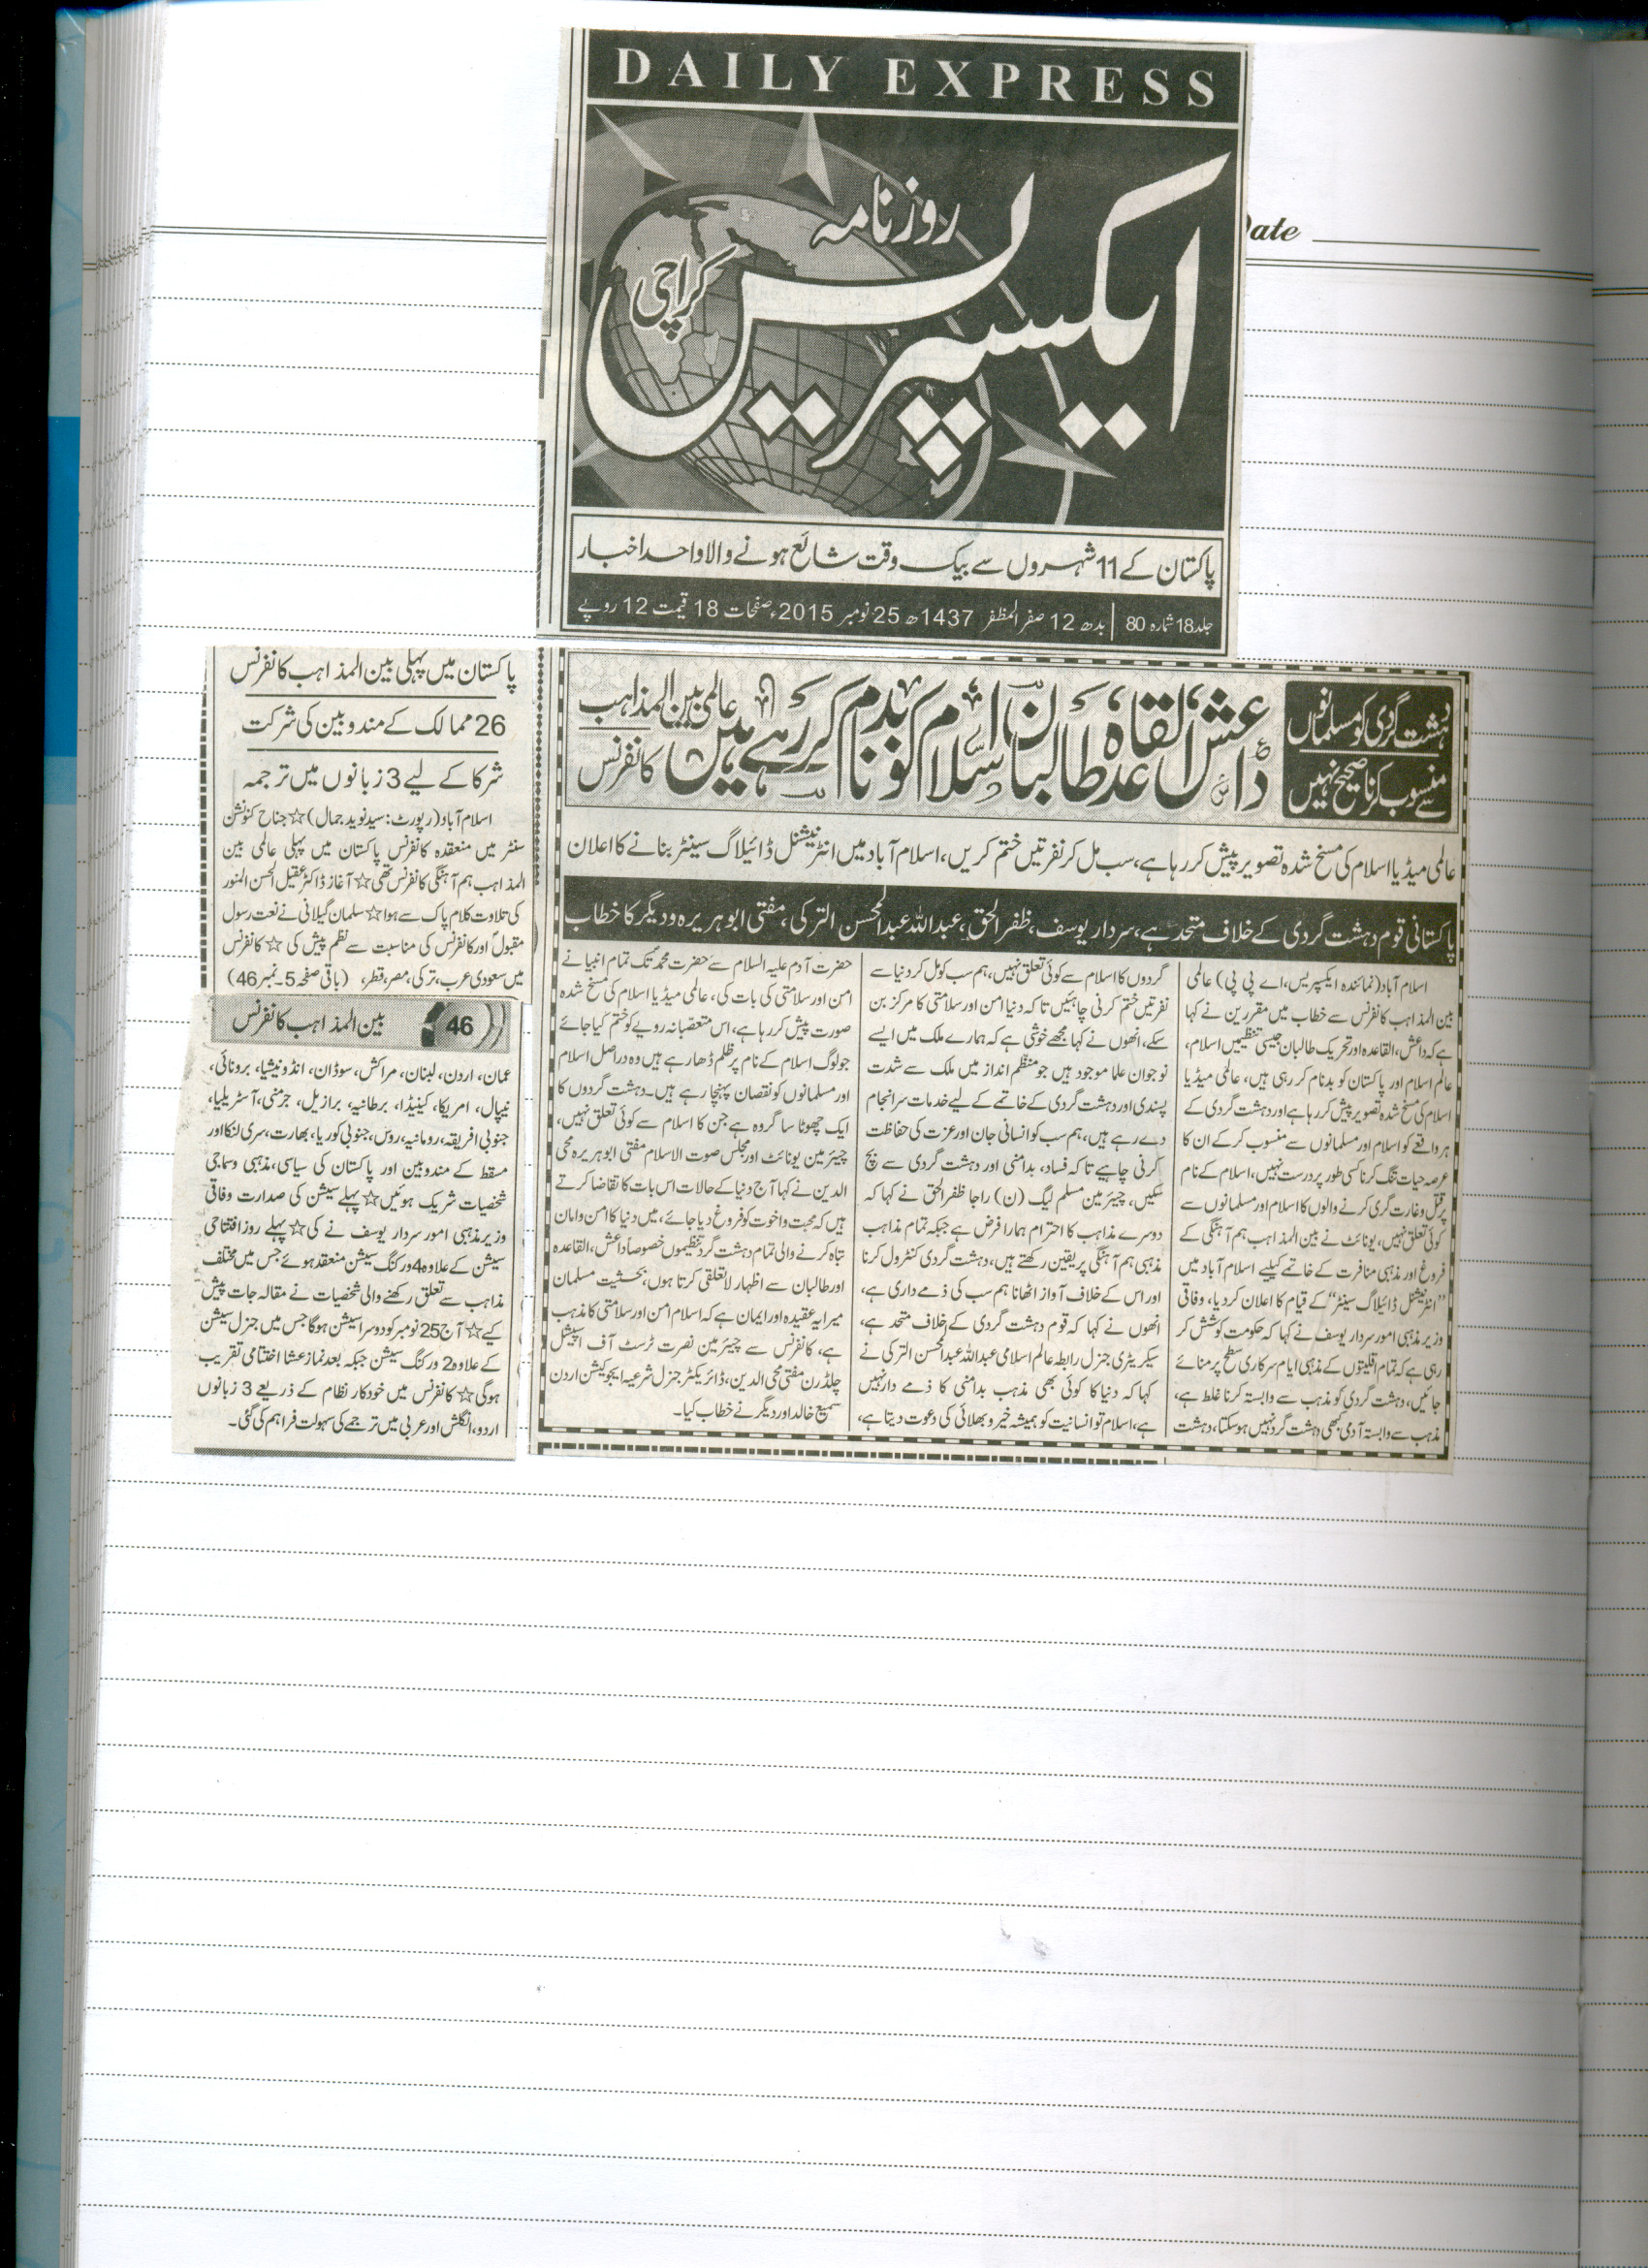 DAILY EXPRESS
Date
روزنامہ
ایکسپریس
کراچی
پاکستان کے 11 شہروں سے بیک وقت شائع ہونے والا واحد اخبار
جلد 18 شمارہ 80 بدھ 12 صفر المظفر 1437ھ 25 نومبر 2015ء صفحات 18 قیمت 12 روپے
دہشت گردی کو مسلمانوں
سے منسوب کرنا صحیح نہیں
داعش، القاعدہ، طالبان اسلام کو بدنام کر رہے ہیں
عالمی بین المذاہب
کانفرنس
عالمی میڈیا اسلام کی مسخ شدہ تصویر پیش کر رہا ہے، سب مل کر نفرتیں ختم کریں، اسلام آباد میں انٹرنیشنل ڈائیلاگ سینٹر بنانے کا اعلان
پاکستانی قوم دہشت گردی کے خلاف متحد ہے، سردار یوسف، ظفر الحق، عبداللہ عبدالمحسن الترکی، مفتی ابو ہریرہ و دیگر کا خطاب
اسلام آباد (نمائندہ ایکسپریس، اے پی پی) عالمی
بین المذاہب کانفرنس سے خطاب میں مقررین نے کہا
ہے کہ داعش، القاعدہ اور تحریک طالبان جیسی تنظیمیں اسلام،
عالم اسلام اور پاکستان کو بدنام کر رہی ہیں، عالمی میڈیا
اسلام کی مسخ شدہ تصویر پیش کر رہا ہے اور دہشت گردی کے
ہر واقعے کو اسلام اور مسلمانوں سے منسوب کر کے ان کا
عرصہ حیات تنگ کرنا کسی طور پر درست نہیں، اسلام کے نام
پر قتل و غارت گری کرنے والوں کا اسلام اور مسلمانوں سے
کوئی تعلق نہیں، یونائٹ نے بین المذاہب ہم آہنگی کے
فروغ اور مذہبی منافرت کے خاتمے کیلیے اسلام آباد میں
”انٹرنیشنل ڈائیلاگ سینٹر“ کے قیام کا اعلان کر دیا، وفاقی
وزیر مذہبی امور سردار یوسف نے کہا کہ حکومت کوشش کر
رہی ہے کہ تمام اقلیتوں کے مذہبی ایام سرکاری سطح پر منائے
جائیں، دہشت گردی کو مذہب سے وابستہ کرنا غلط ہے،
مذہب سے وابستہ آدمی کبھی دہشت گرد نہیں ہو سکتا، دہشت
گردوں کا اسلام سے کوئی تعلق نہیں، ہم سب کو مل کر دنیا سے
نفرتیں ختم کرنی چاہئیں تاکہ دنیا امن اور سلامتی کا مرکز بن
سکے، انھوں نے کہا مجھے خوشی ہے کہ ہمارے ملک میں ایسے
نوجوان علما موجود ہیں جو منظم انداز میں ملک سے شدت
پسندی اور دہشت گردی کے خاتمے کے لیے خدمات سرانجام
دے رہے ہیں، ہم سب کو انسانی جان اور عزت کی حفاظت
کرنی چاہیے تاکہ فساد، بدامنی اور دہشت گردی سے بچ
سکیں، چیئرمین مسلم لیگ (ن) راجا ظفر الحق نے کہا کہ
دوسرے مذاہب کا احترام ہمارا فرض ہے جبکہ تمام مذاہب
مذہبی ہم آہنگی پر یقین رکھتے ہیں، دہشت گردی کنٹرول کرنا
اور اس کے خلاف آواز اٹھانا ہم سب کی ذمے داری ہے،
انھوں نے کہا کہ قوم دہشت گردی کے خلاف متحد ہے،
سیکریٹری جنرل رابطہ عالم اسلامی عبداللہ عبدالمحسن الترکی نے
کہا کہ دنیا کا کوئی بھی مذہب بدامنی کا ذمے دار نہیں
ہے، اسلام تو انسانیت کو ہمیشہ خیر و بھلائی کی دعوت دیتا ہے،
حضرت آدم علیہ السلام سے حضرت محمدؐ تک تمام انبیا نے
امن اور سلامتی کی بات کی، عالمی میڈیا اسلام کی مسخ شدہ
صورت پیش کر رہا ہے، اس متعصبانہ رویے کو ختم کیا جائے
جو لوگ اسلام کے نام پر ظلم ڈھا رہے ہیں وہ دراصل اسلام
اور مسلمانوں کو نقصان پہنچا رہے ہیں۔ دہشت گردوں کا
ایک چھوٹا سا گروہ ہے جن کا اسلام سے کوئی تعلق نہیں،
چیئرمین یونائٹ اور مجلس صوت الاسلام مفتی ابو ہریرہ محی
الدین نے کہا آج دنیا کے حالات اس بات کا تقاضا کرتے
ہیں کہ محبت و اخوت کو فروغ دیا جائے، میں دنیا کا امن و امان
تباہ کرنے والی تمام دہشت گرد تنظیموں خصوصاً داعش، القاعدہ
اور طالبان سے اظہار لاتعلقی کرتا ہوں، بحیثیت مسلمان
میرا یہ عقیدہ اور ایمان ہے کہ اسلام امن اور سلامتی کا مذہب
ہے، کانفرنس سے چیئرمین نصرت ٹرسٹ آف اسپیشل
چلڈرن مفتی محی الدین، ڈائریکٹر جنرل شرعیہ ایجوکیشن اردن
سمیع خالد اور دیگر نے خطاب کیا۔
پاکستان میں پہلی بین المذاہب کانفرنس
26 ممالک کے مندوبین کی شرکت
شرکا کے لیے 3 زبانوں میں ترجمہ
اسلام آباد (رپورٹ: سید نوید جمال) ☆ جناح کنونشن
سنٹر میں منعقدہ کانفرنس پاکستان میں پہلی عالمی بین
المذاہب ہم آہنگی کانفرنس تھی ☆ آغاز ڈاکٹر عقیل الحسن المنور
کی تلاوت کلام پاک سے ہوا ☆ سلمان گیلانی نے نعت رسول
مقبولؐ اور کانفرنس کی مناسبت سے نظم پیش کی ☆ کانفرنس
میں سعودی عرب، ترکی، مصر، قطر، (باقی صفحہ 5۔ نمبر 46)
46 بین المذاہب کانفرنس
عمان، اردن، لبنان، مراکش، سوڈان، انڈونیشیا، برونائی،
نیپال، امریکا، کینیڈا، برطانیہ، برازیل، جرمنی، آسٹریلیا،
جنوبی افریقہ، رومانیہ، روس، جنوبی کوریا، بھارت، سری لنکا اور
مسقط کے مندوبین اور پاکستان کی سیاسی، مذہبی و سماجی
شخصیات شریک ہوئیں ☆ پہلے سیشن کی صدارت وفاقی
وزیر مذہبی امور سردار یوسف نے کی ☆ پہلے روز افتتاحی
سیشن کے علاوہ 4 ورکنگ سیشن منعقد ہوئے جس میں مختلف
مذاہب سے تعلق رکھنے والی شخصیات نے مقالہ جات پیش
کیے ☆ آج 25 نومبر کو دوسرا سیشن ہوگا جس میں جنرل سیشن
کے علاوہ 2 ورکنگ سیشن جبکہ بعد نماز عشا اختتامی تقریب
ہوگی ☆ کانفرنس میں خودکار نظام کے ذریعے 3 زبانوں
اردو، انگلش اور عربی میں ترجمے کی سہولت فراہم کی گئی۔